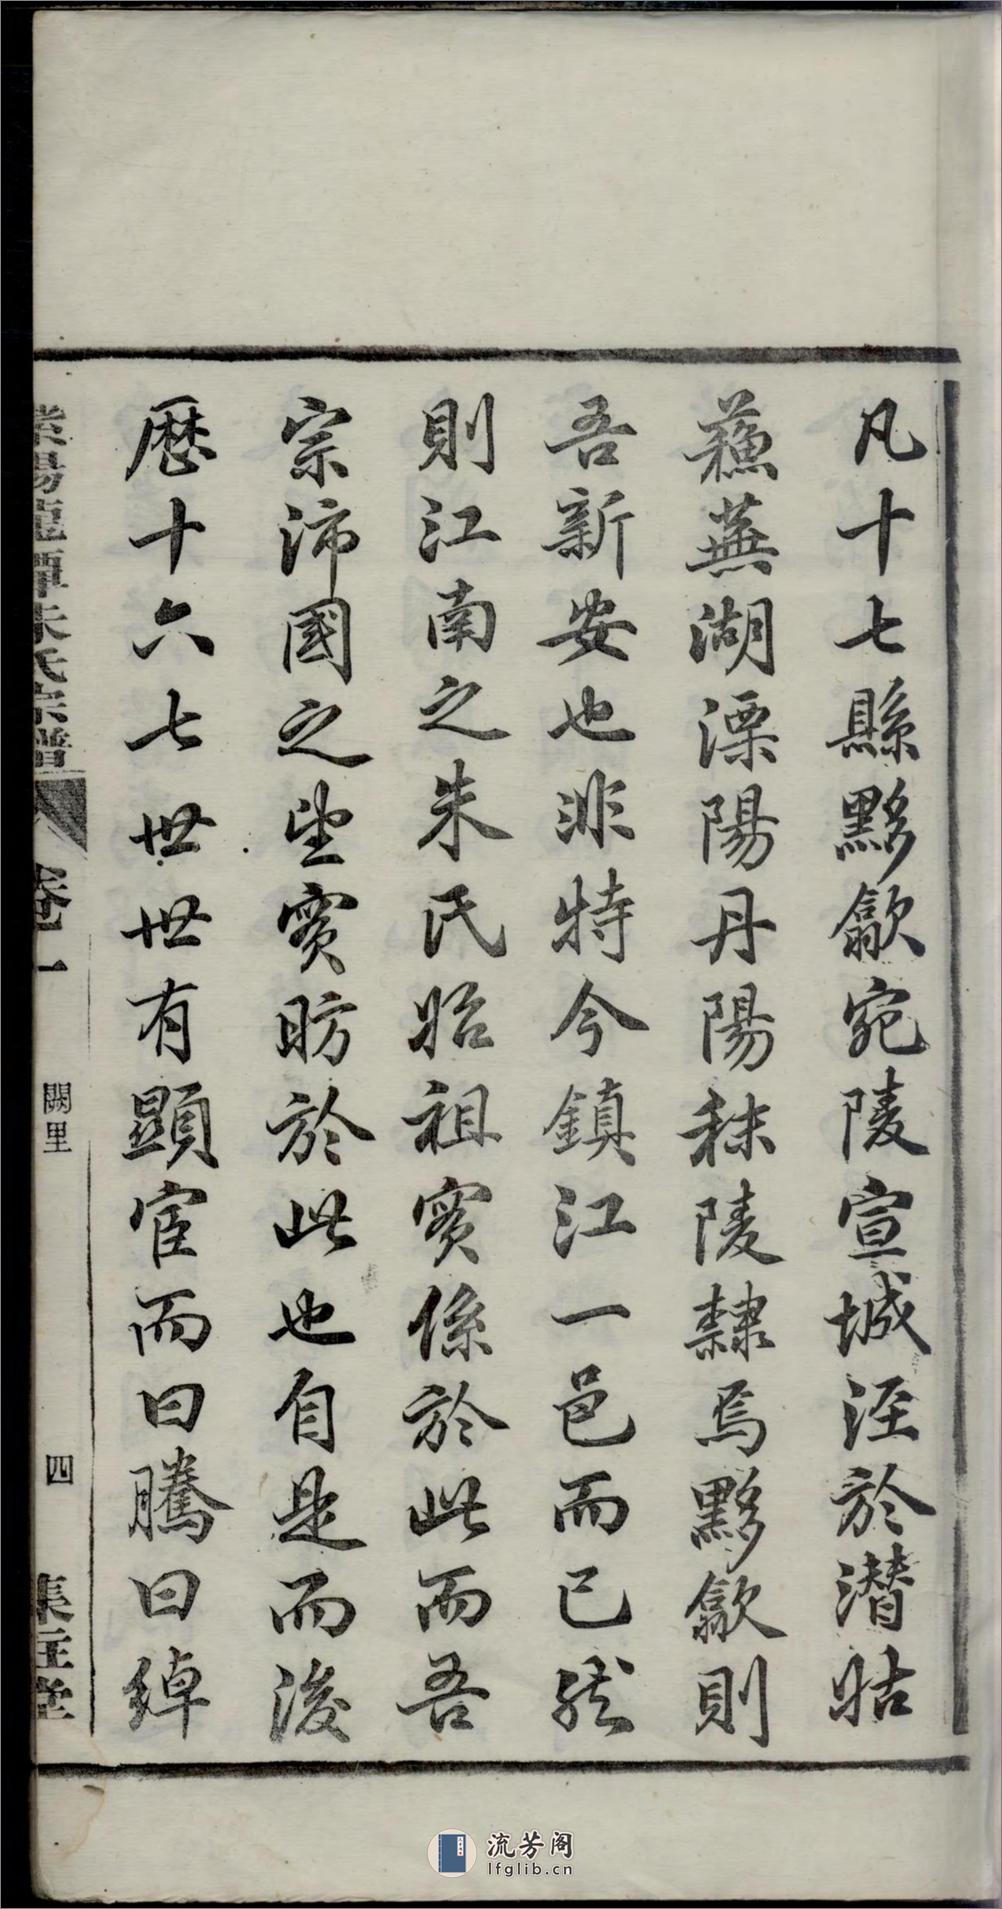 凡十七縣黟歙宛陵宣城涇於潛姑
蘓蕪湖溧陽丹陽秣陵隷焉黟歙則
吾新安也非特今鎮江一邑而已然
則江南之朱氏始祖實係於此而吾
宗沛國之望實昉於此也自是而後
歴十六七世世有顯宦而曰騰曰綽
紫陽龍潭朱氏宗譜
卷一
闕里
四
集註堂
流芳阁
lfglib.cn